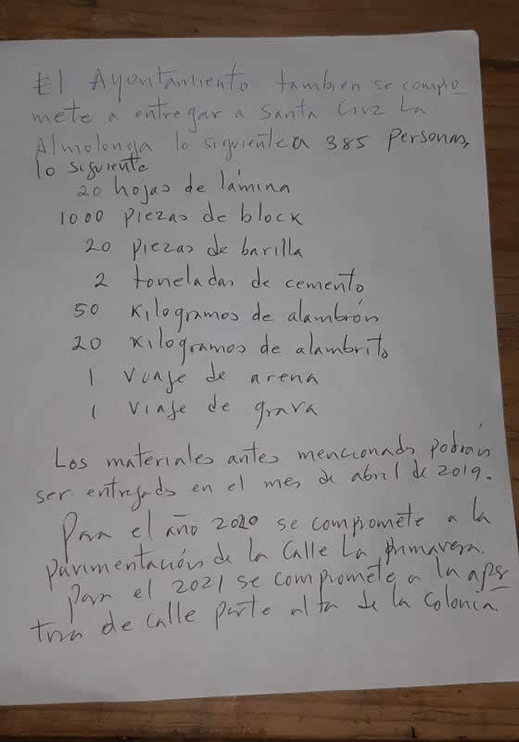 El Ayontamiento tambien se compro_
mete a entregar a Santa Cruz La
Almolonga lo siguiente a 385 personas,
lo siguiente
20 hojas de lámina
1000 piezas de block
20 piezas de barilla
2 toneladas de cemento
50 kilogramos de alambrón
20 kilogramos de alambrito
1 viaje de arena
1 viaje de grava
Los materiales antes mencionados podrán
ser entregados en el mes de abril de 2019.
Para el año 2020 se compromete a la
pavimentación de la Calle La primavera.
Para el 2021 se compromete a la aper_
tura de calle parte alta de la colonia.